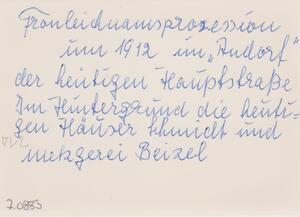 Fronleichnamsprozession
um 1912 im „Andorf"
der heutigen Hauptstraße
Im Hintergrund die heuti-
gen Häuser Schmidt und
Metzgerei Beizel
7.0883